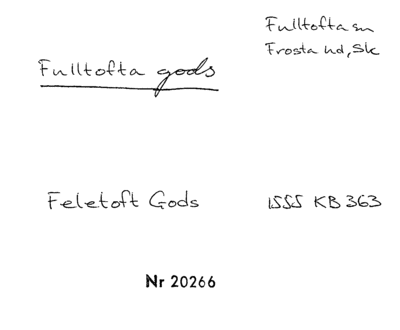 Fulltofta sn
Frosta hd, Sk
Fulltofta gods
Feletoft Gods 1555 KB 363
Nr 20266